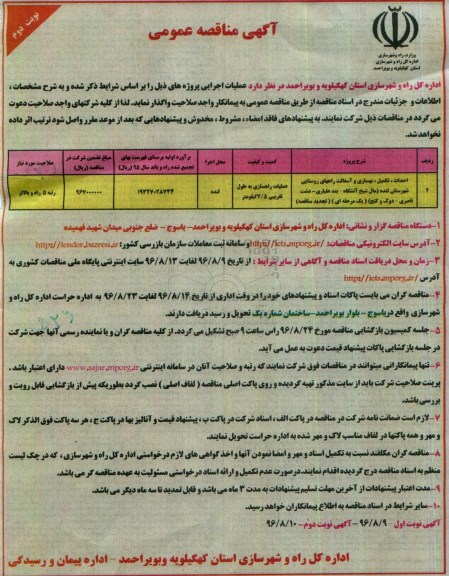 نوبت دوم
آگهی مناقصه عمومی
وزارت راه و شهرسازی
اداره کل راه و شهرسازی
استان کهگیلویه و بویراحمد
اداره کل راه و شهرسازی استان کهگیلویه و بویراحمد در نظر دارد عملیات اجرایی پروژه های ذیل را بر اساس شرایط ذکر شده و به شرح مشخصات ،
اطلاعات و جزئیات مندرج در اسناد مناقصه از طریق مناقصه عمومی به پیمانکار واجد صلاحیت واگذار نماید. لذا از کلیه شرکتهای واجد صلاحیت دعوت
می گردد در مناقصات ذیل شرکت نمایند. به پیشنهادهای فاقد امضاء ، مشروط ، مخدوش و پیشنهادهایی که بعد از موعد مقرر واصل شود ترتیب اثر داده
نخواهد شد.
ردیف شرح پروژه کمیت و کیفیت محل اجرا برآورد اولیه برمبنای فهرست بهای تجمیع شده راه و باند سال ۹۵ (ریال) مبلغ تضمین شرکت در مناقصه (ریال) صلاحیت مورد نیاز
۲ احداث ، تکمیل ، بهسازی و آسفالت راههای روستایی
عملیات راهسازی به طول تقریبی ۷/۵ کیلومتر لنده ۱۹۳۲۷۰۲۸۷۴۴ ۹۶۷۰۰۰۰۰۰ رتبه ۵ راه و بالاتر
۱-دستگاه مناقصه گزار و نشانی: اداره کل راه و شهرسازی استان کهگیلویه و بویراحمد- یاسوج - ضلع جنوبی میدان شهید فهمیده
۲-آدرس سایت الکترونیکی مناقصات: http://iets.mporg.ir/ و سامانه ثبت معاملات سازمان بازرسی کشور: http://tender.bazresi.ir
۳-زمان و محل دریافت اسناد مناقصه و آگاهی از سایر شرایط : از تاریخ ۹۶/۸/۹ لغایت ۹۶/۸/۱۳ سایت اینترنتی پایگاه ملی مناقصات کشوری به
آدرس http://iets.mporg.ir/
۴-مناقصه گران می بایست پاکات اسناد و پیشنهادهای خود را در وقت اداری از تاریخ ۹۶/۸/۱۴ لغایت ۹۶/۸/۲۳ به اداره حراست اداره کل راه و
شهرسازی واقع در یاسوج - بلوار بویراحمد-ساختمان شماره یک تحویل و رسید دریافت دارند.
۵-جلسه کمیسیون بازگشایی مناقصه مورخ ۹۶/۸/۲۴ راس ساعت ۹ صبح تشکیل می گردد. از کلیه مناقصه گران و یا نماینده رسمی آنها جهت شرکت
در جلسه بازگشایی پاکات پیشنهاد قیمت دعوت به عمل می آید.
۶-تنها پیمانکارانی میتوانند در مناقصات فوق شرکت نمایند که رتبه و صلاحیت آنان در سامانه اینترنتی www.sajar.mporg.ir دارای اعتبار باشد .
پرینت صلاحیت شرکت باید از سایت مذکور تهیه گردیده و روی پاکت اصلی مناقصه ( لفاف اصلی ) نصب گردد بطوریکه پیش از بازگشایی قابل رویت و
بررسی باشد.
۷-لازم است ضمانت نامه شرکت در مناقصه در پاکت الف ، اسناد شرکت در پاکت ب ، پیشنهاد قیمت و آنالیز بها در پاکت ج ، هر سه پاکت فوق الذکر لاک
و مهر و همه پاکتها در لفاف مناسب لاک و مهر شده به اداره حراست تحویل نمایند.
۸-مناقصه گران مکلفند نسبت به تکمیل اسناد و مهر و امضا نمودن آنها و اخذ گواهی های لازم درخواستی اداره کل راه و شهرسازی ، که در چک لیست
منظم به اسناد مناقصه درج گردیده اقدام نمایند. درصورت عدم تکمیل و ارائه اسناد درخواستی مسئولیت به عهده مناقصه گر می باشد.
۹-مدت اعتبار پیشنهادات از آخرین مهلت تسلیم پیشنهادات به مدت ۳ ماه می باشد و قابل تمدید تا سه ماه دیگر می باشد.
۱۰-سایر شرایط در اسناد مناقصه به اطلاع پیمانکاران خواهد رسید.
آگهی نوبت اول - ۹۶/۸/۹ - آگهی نوبت دوم- ۹۶/۸/۱۰
اداره کل راه و شهرسازی استان کهگیلویه و بویراحمد - اداره پیمان و رسیدگی